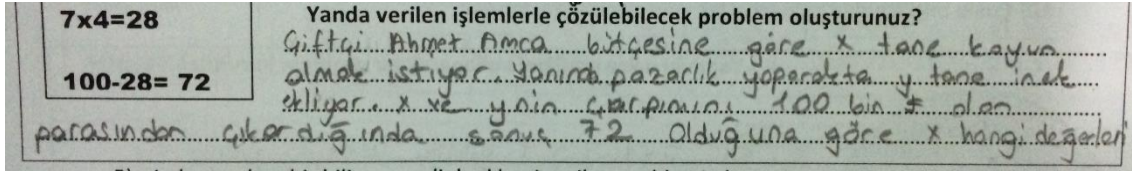 7x4=28
100-28= 72
Yanda verilen işlemlerle çözülebilecek problem oluşturunuz?
Çiftçi Ahmet Amca bütçesine göre x tane koyun
almak istiyor. Yanında pazarlık yaparakta y tane inek
ekliyor. x ve y nin çarpımını 100 bin ₺ olan
parasından çıkardığında sonuç 72 olduğuna göre x hangi değerleri